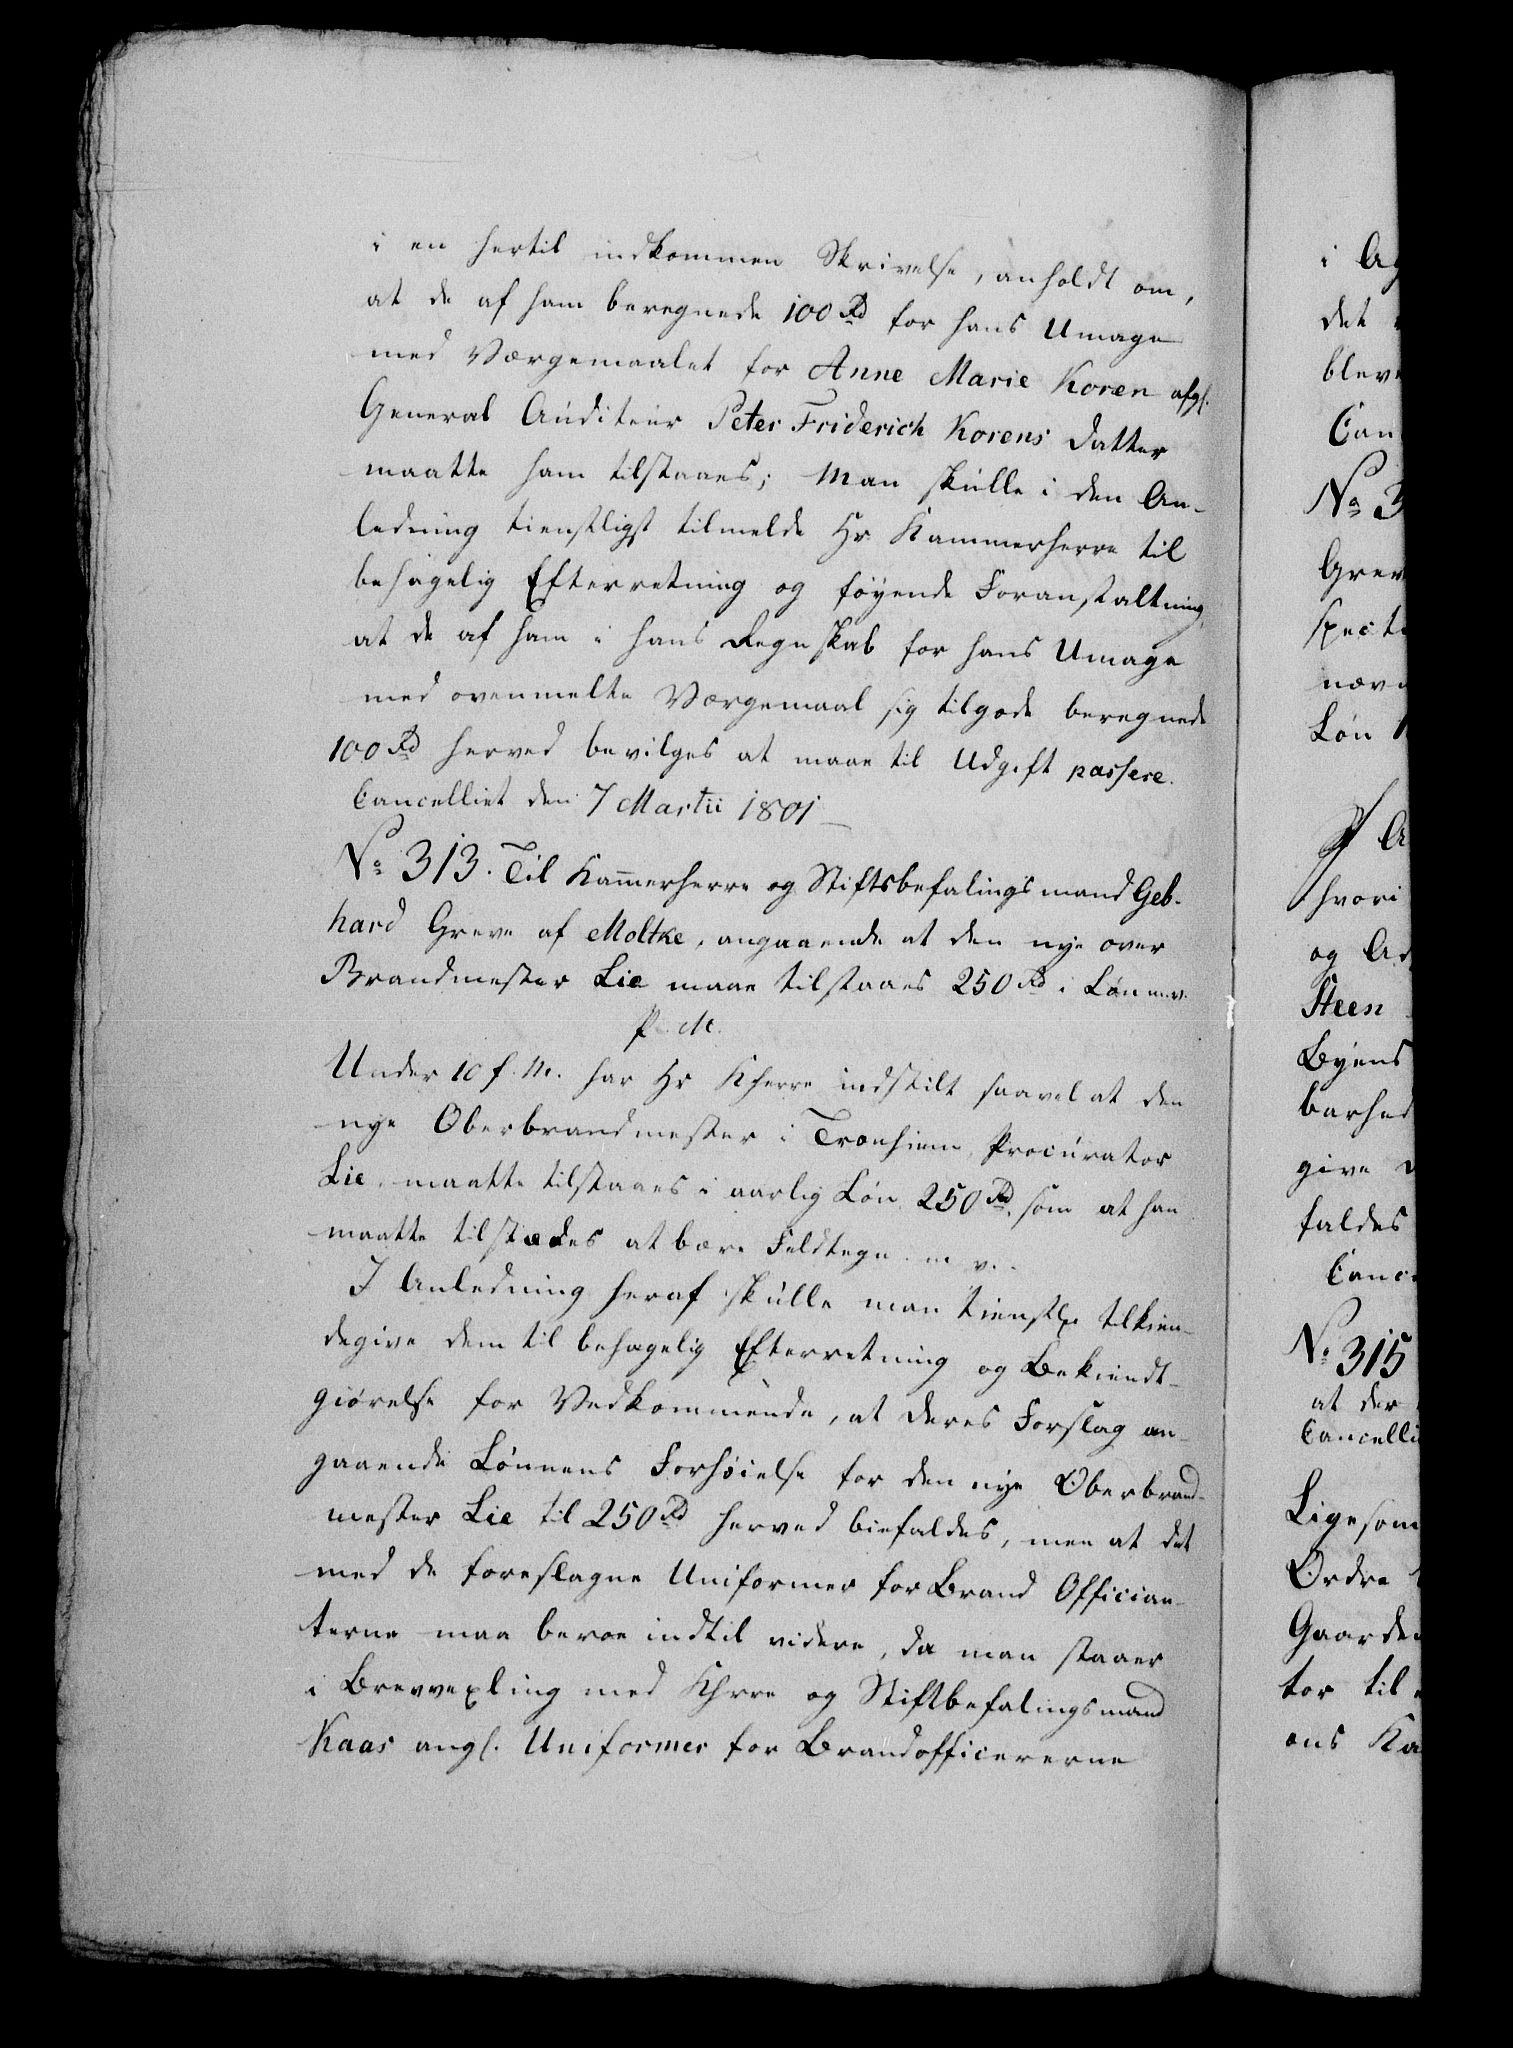 i en hertil indkommen Skrivelse, anholdt om,
at de af ham beregnede 100 Rd for hans Umage
med Værgemaalet for Anne Marie Koren afg.
General Auditeur Peter Friderich Korens Datter
maatte ham tilstaaes; Man skulle i den An-
ledning tienstligst tilmelde Hr Kammerherre til
behagelig Efterretning og føyende Foranstaltning,
at de af ham i hans Regnskab for hans Umage
med ovenmelte Værgemaal sig tilgode beregnede
100 Rd herved bevilges at maae til Udgift passere.
Cancelliet den 7 Martii 1801
No 313. Til Kammerherre og Stiftsbefalingsmand Geb-
hard Greve af Moltke, angaaende at den nye over
Brandmester Lie maae tilstaaes 250 Rd i Løn m.v.
P. M.
Under 10 f. M. har Hr Kherre indstilt saavel at den
nye Oberbrandmester i Tronhiem, Procurator
Lie, maatte tilstaaes i aarlig Løn 250 Rd, som at han
maatte tilstædes at bære Feldtegn m v.
I Anledning heraf skulle man tienstl. tilkien-
degive dem til behagelig Efterretning og Bekiendt-
giørelse for Vedkommende, at deres Forslag an-
gaaende Lønnens Forhøielse for den nye Oberbrand-
mester Lie til 250 Rd herved biefaldes, men at det
med de foreslagne Uniformer for Brand Offician-
terne maa beroe indtil videre, da man staaer
i Brevvexling med Khrre og Stiftbefalingsmand
Kaas angl. Uniformer for Brandofficererne
det
Can
No 3
Løn
hvori
og
Steen
Byens
barhed
give
faldes
Canc
No 315
at der
Cancelli
Ligesom
Ordre
Gaarde
tor til
ons Ka